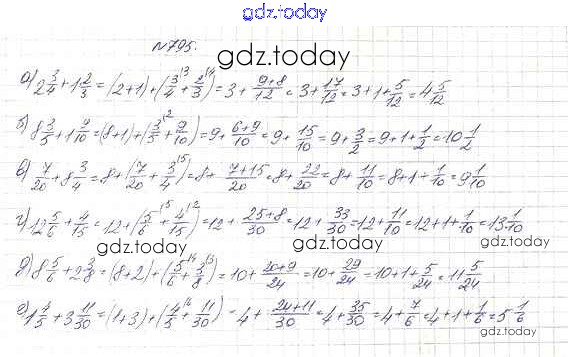 gdz.today
№795.
gdz.today
а) 2 3/4 + 1 2/3 = (2+1) + (3/4 + 2/3) = 3 + 9+8/12 = 3 + 17/12 = 3+1+ 5/12 = 4 5/12
б) 8 3/5 + 1 9/10 = (8+1) + (3/5 + 9/10) = 9 + 6+9/10 = 9 + 15/10 = 9 + 3/2 = 9+1+ 1/2 = 10 1/2
в) 7/20 + 8 3/4 = 8 + (7/20 + 3/4) = 8 + 7+15/20 = 8 + 22/20 = 8 + 11/10 = 8+1+ 1/10 = 9 1/10
г) 12 5/6 + 4/15 = 12 + (5/6 + 4/15) = 12 + 25+8/30 = 12 + 33/30 = 12 + 11/10 = 12+1+ 1/10 = 13 1/10
gdz.today
gdz.today
д) 8 5/6 + 2 3/8 = (8+2) + (5/6 + 3/8) = 10 + 20+9/24 = 10 + 29/24 = 10+1+ 5/24 = 11 5/24
е) 1 4/5 + 3 11/30 = (1+3) + (4/5 + 11/30) = 4 + 24+11/30 = 4 + 35/30 = 4 + 7/6 = 4+1+ 1/6 = 5 1/6
gdz.today
gdz.today